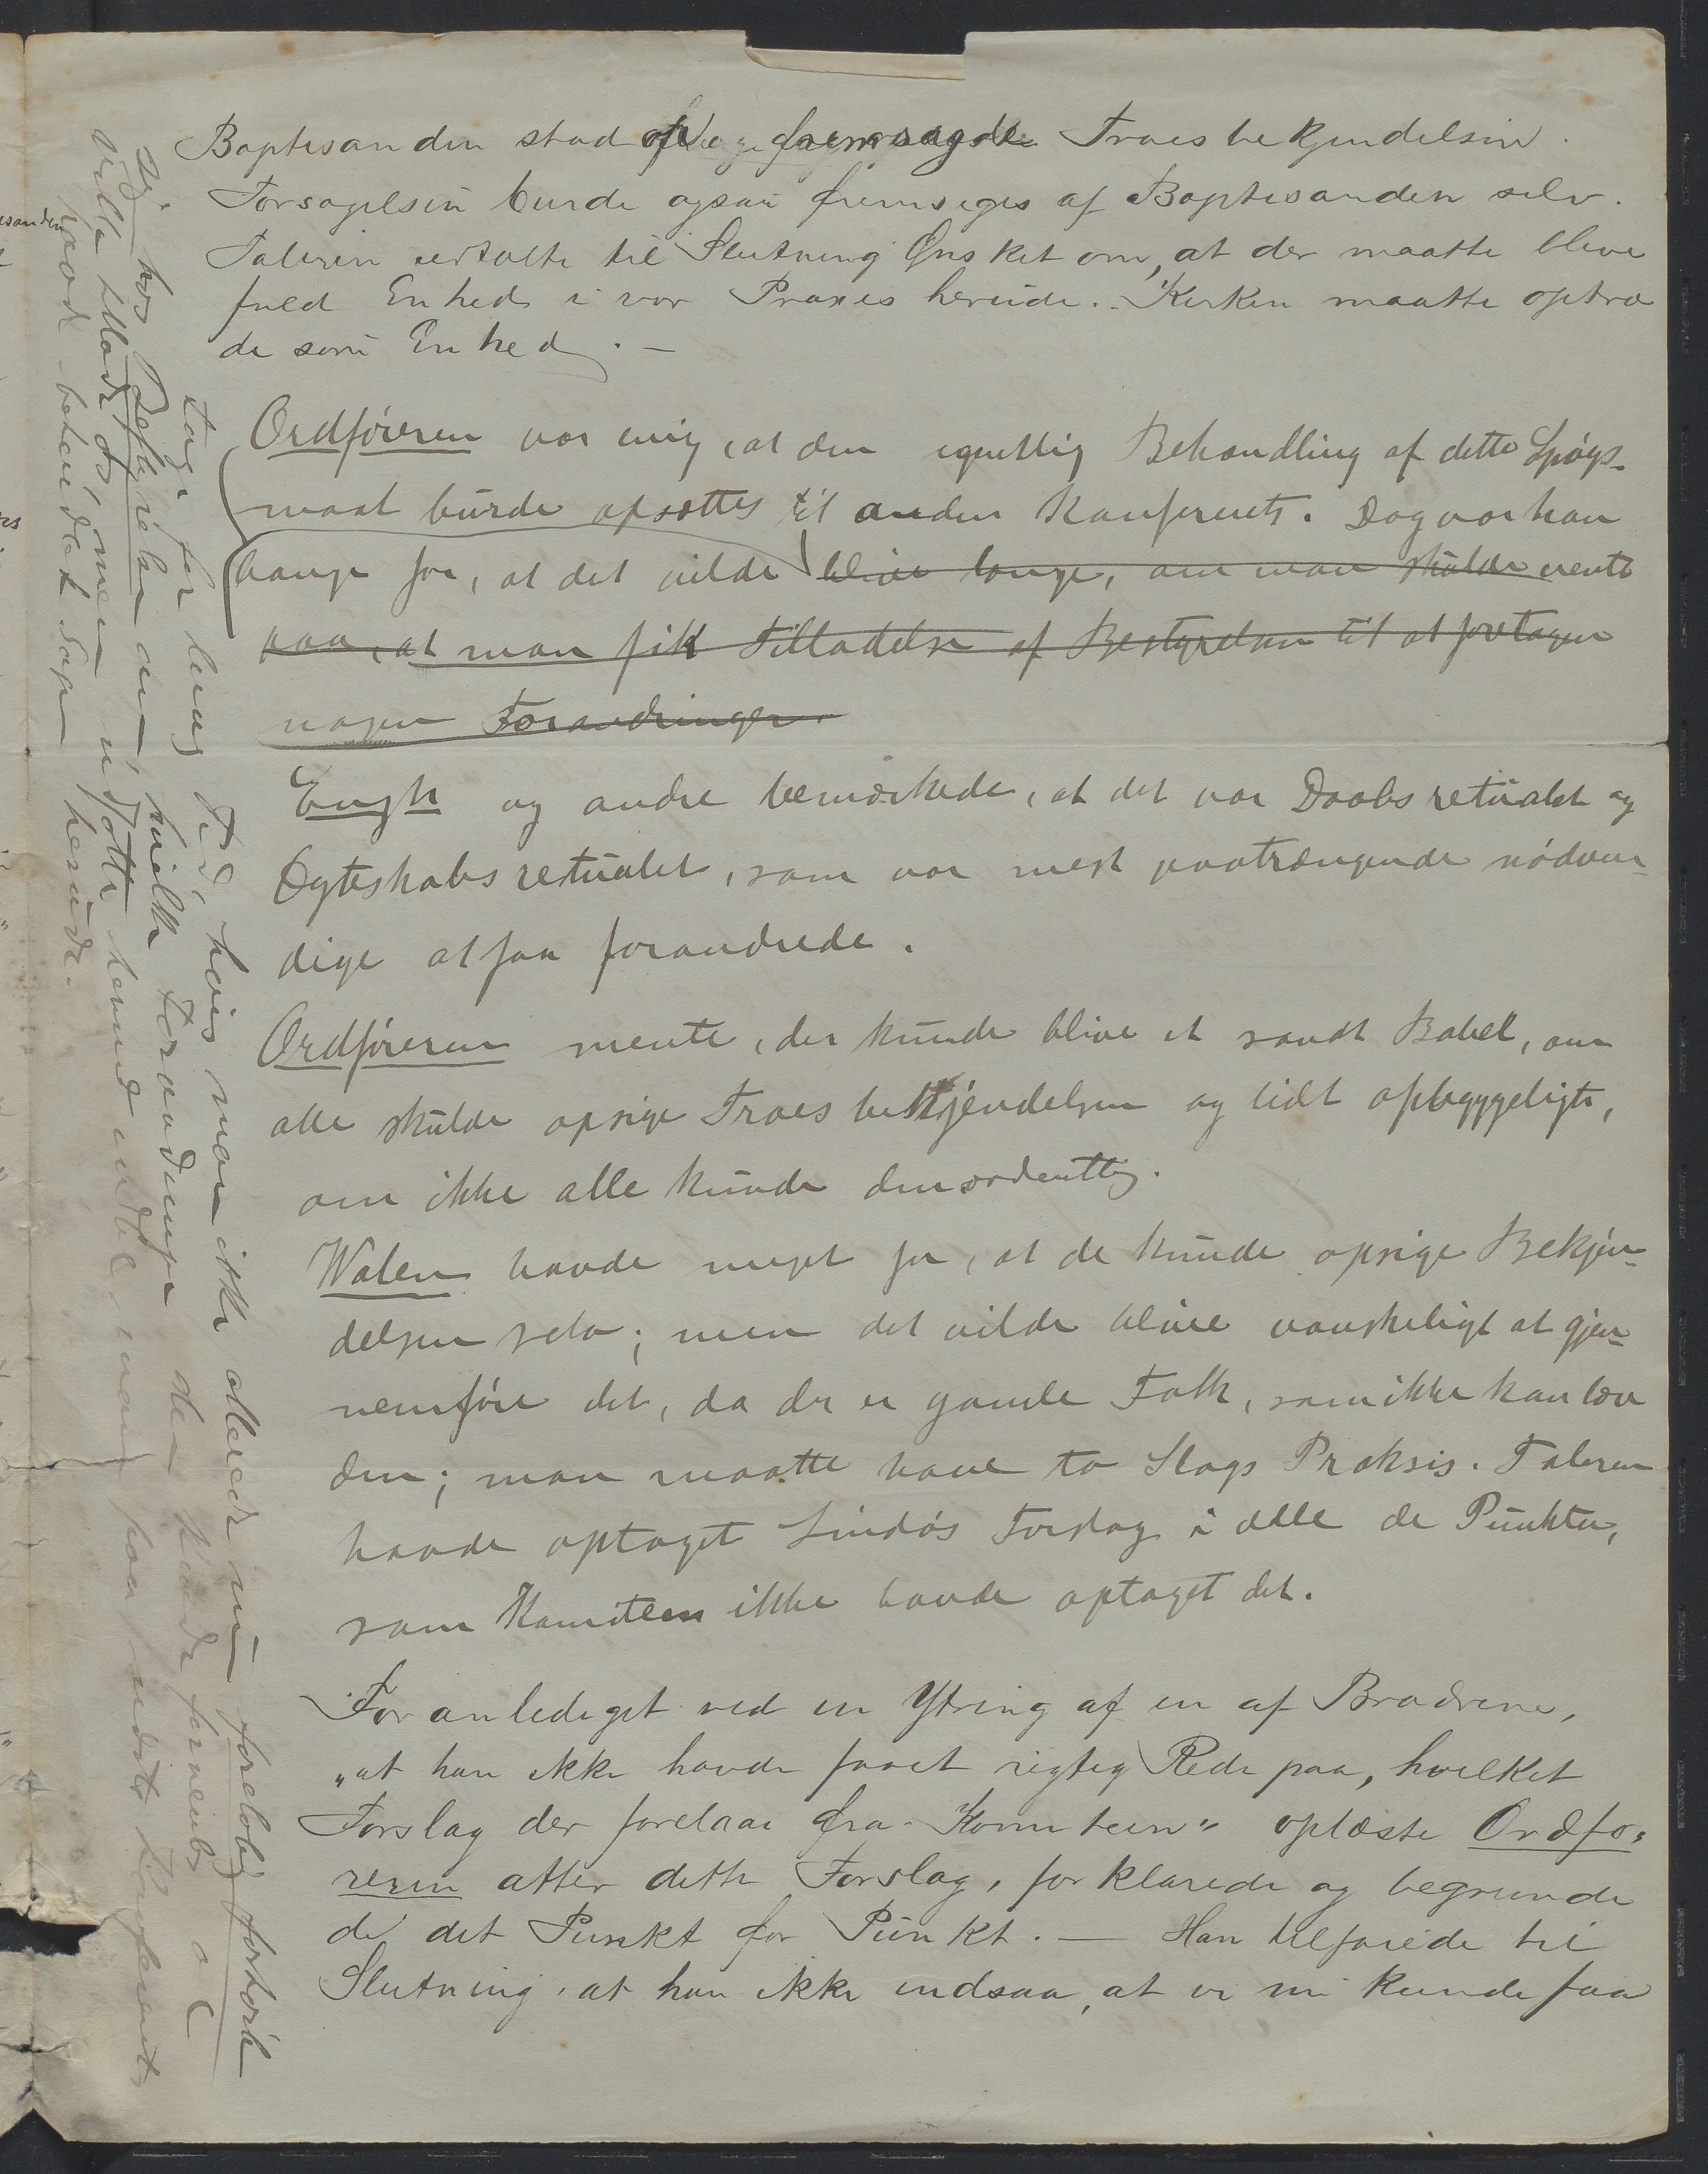 Baptisanden stod op og fremsagde Troesbekjendelsen.
Forsagelsen burde ogsaa fremsiges af Baptisanden selv.
Taleren udtalte til Slutning Ønsket om, at der maatte blive
fuld Enhed i vor Praxis herude. Kirken maatte optræ
de som Enhed. —
Ordføreren var enig, at den egentlig Behandling af dette Spøgs-
maal burde opsættes til anden Konferents. Dog var han
bange for, at det vilde blive længe, om man skulde vente
paa, at man fik Tilladelse af Bestyrelsen til at foretagen
nogen Forandringer.
Engh og andre bemærkede, at det var Daabsretualet og
Ægteskabsretualet, som var mest paatrængende nødven-
dige at faa forandrede.
Ordføreren mente, der kunde blive et sandt Babel, om
alle skulde opsige Troesbekjendelsen og lidt opbyggeligt,
om ikke alle kunde den ordentlig.
Walen havde meget for, at de kunde opsige Bekjen-
delsen selv; men det vilde blive vanskeligt at gjen-
nemføre det, da der er gamle Folk, som ikke kan lære
den; man maatte have to Slags Praksis. Taleren
havde optaget Lindøs Forslag i alle de Punkter,
som Komiteen ikke havde optaget det.
Foranlediget ved en Ytring af en af Brødrene,
"at han ikke havde faaet rigtig Rede paa, hvilket
Forslag der forelaa fra Komiteen" oplæste Ordfø-
reren atter dette Forslag, forklarede og begrunde
de det Punkt for Punkt. — Han tilføiede til
Slutning, at han ikke indsaa, at vi nu kunde faa
tage for lang Tid, hvis man ikke allerede nu foreløbig forhørte
sig hos Bestyrelsen om, hvilke Forandringer den havde fornemt
vilde tillade os, men udsatte hermed indtil man paa næste Konferents
havde behandlet Sagen herude.